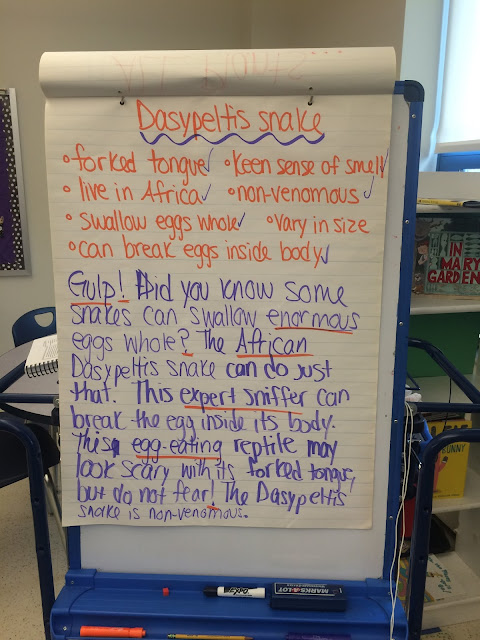 Dasypeltis snake
• forked tongue✓ • Keen sense of smell✓
• live in Africa✓ • non-venomous ✓
• swallow eggs whole✓ • Vary in size
• can break eggs inside body✓
Gulp! Did you know some
snakes can swallow enormous
eggs whole? The African
Dasypeltis snake can do just
that. This expert sniffer can
break the egg inside its body.
This egg-eating reptile may
look scary with its forked tongue,
but do not fear! The Dasypeltis
snake is non-venomous.
IN
MARY
GARDEN
BUNNY
EXPO
MARKS-A-LOT